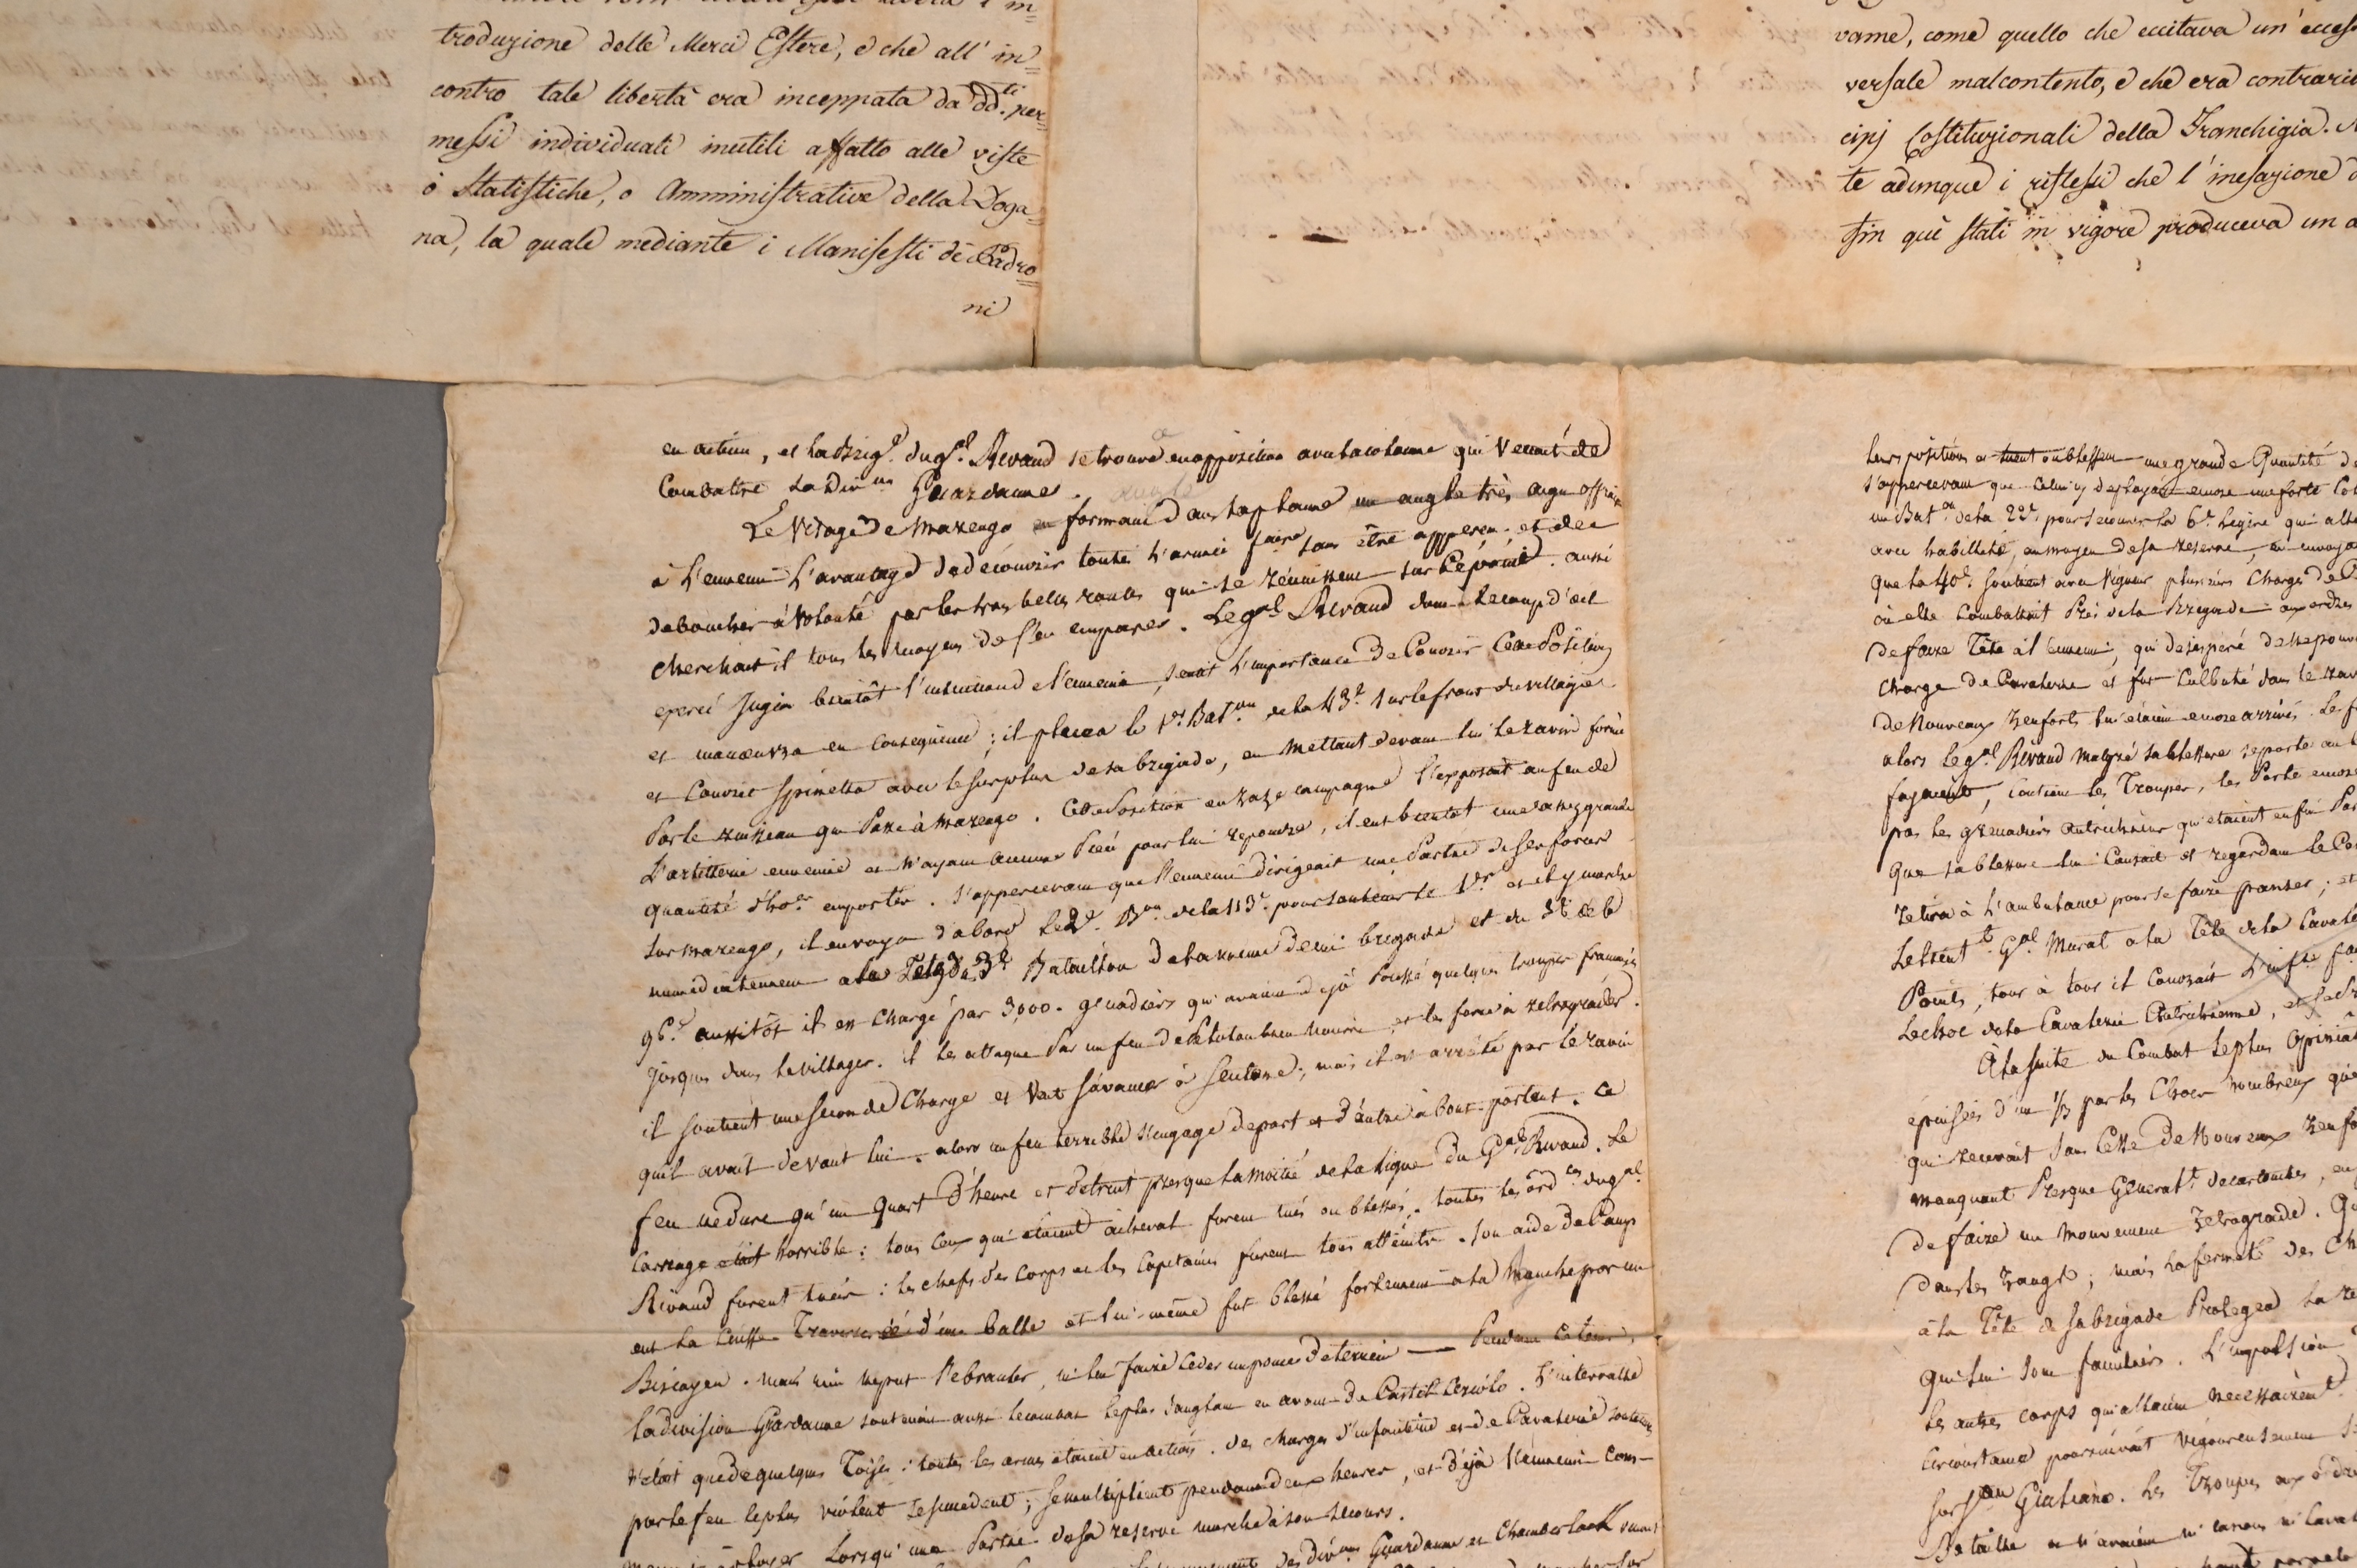 troduzione delle Merci Estere, e che all' in=
contro tale libertà era inceppata da dd.ti per=
messi individuati inutili affatto alle viste
o Statistiche, o Amministrative della Doga=
na, la quale mediante i Manifesti de Padro=
ni
vame, come quello che eccitava un' eccess
versale malcontento, e che era contrario
cipj Costituzionali della Franchigia.
te adunque i riflessi che l' inesazione d
fin quì stati in vigore produceva un a
en action, et la Brig.e du g.al Rivaud se trouva en opposition avec la colonne qui Venait de
Combattre La Div.on Gardanne.
Le Village de Marengo en formant dans la plaine un angle très aigu offrait
à L'ennemi L'avantage de découvrir toute L'armée sans être apperçu et de
déboucher à Volonté par les trois belles routes qui se réunissent sur Ce point. aussi
cherchait il tous les moyens de s'en emparer. Le g.al Rivaud dont le coup d'œil
exercé Jugea bientôt l'intention de l'ennemi, sentit L'importance de Couvrir Cette Position
et manœuvra en Conséquence; il plaça le 1.er Bat.on de la 43.e sur le front du village
et Couvrit Spinetta avec le surplus de sa brigade, en Mettant devant lui Le ravin formé
Par le ruisseau qui Passe à Marengo. Cette Position en raze campagne l'exposait au feu de
L'artillerie ennemie et N'ayant aucune Pièce pour lui repondre, il eut bientôt une assez grande
quantité d'ho.es emportés. S'appercevant que l'ennemi dirigeait une Partie de ses forces
sur marengo, il envoya d'abord Le 2.e B.on de la 43.e pour soutenir le 1.er et il y marcha
immédiatement a la Tête du 3.e Bataillon de la même demi brigade et du 3.e de la
96.e aussitôt il est Chargé par 3,000. grenadiers qui avaient déjà Poussé quelques troupes françaises
jusques dans le village. il les attaque Par un feu de Peloton bien Nourri et les force à rétrograder.
il soutient une seconde Charge et Veut s'avancer à son tour; mais il est arrêté par le ravin
qu'il avait devant lui. alors un feu terrible s'engage de part et d'autre à bout-portant. Ce
feu ne dure qu'un Quart D'heure et détruit presque La moitié de la ligne du G.al Rivaud. Le
Carnage était horrible: tous Ceux qui étaient à cheval furent tués ou blessés. toutes les ord.ces du g.al
Rivaud furent tués: les chefs des Corps et les Capitaines furent tous atteints. Son aide de Camp
eut la Cuisse Traversée d'une balle et lui-même fut blessé fortement a la hanche par un
Biscayen. mais rien ne put l'ébranler, ni lui faire Céder un pouce de terrein — Pendant ce tems,
la division Gardanne soutenait aussi le combat le plus sanglant en avant de Castel Ceriolo. L'intervalle
n'était que de quelques Toises: toutes les armes étaient en action. des charges d'infanterie et de Cavalerie soutenues
par le feu le plus violent se succèdent; se multiplient pendant deux heures, et Déjà l'ennemi Com-
Lorsqu'une Partie de sa reserve marche à son secours.
des div.ons Gardanne et Chamberlack
leurs positions et tuent ou blessent une grande Quantité de
un Bat.on de la 22.e pour secourir la 6.e Légère qui all
avec habileté, au moyen de sa reserve, en
Que la 40.e soutient avec vigueur plusieurs Charges de
où elle Combattait Près de la Brigade aux ordres
de faire Tête à l'ennemi, qui désespéré de ne pouv
Charge de Cavalerie et fut Culbuté dans le rav
de Nouveaux Renforts lui étaient encore arrivés.
alors le g.al Rivaud Malgré sa blessure se porte au
les Troupes, les Porte encore
pas les grenadiers autrichiens qui étaient enfin
Que sa blessure lui Causait et regardant le
retira à L'ambulance pour se faire panser; et
Le Lieut.t G.al Murat a la Tête de la Cavale
Points, tour à tour il Couvrait L'inf.rie
Le choc de la Cavalerie Autrichienne, et
À la suite du Combat Le plus Opiniât
épuisées d'un 1/3 par les Chocs Nombreux
qui recevait sans Cesse De Nouveaux Renfo
manquant Presque Général.t de cartouches, en
de faire un Mouvement Rétrograde.
Dans les Rangs; mais la fermeté des Ch
à la Tête de sa brigade Protégea La re
Qui lui sont familiers. L'impulsion
les autres corps qui allaient nécessairem.t
Circonstance poursuivait Vigoureusement
sur S.an Giuliano. Les Troupes aux ordr
Bataille et n'avaient ni canons ni Caval